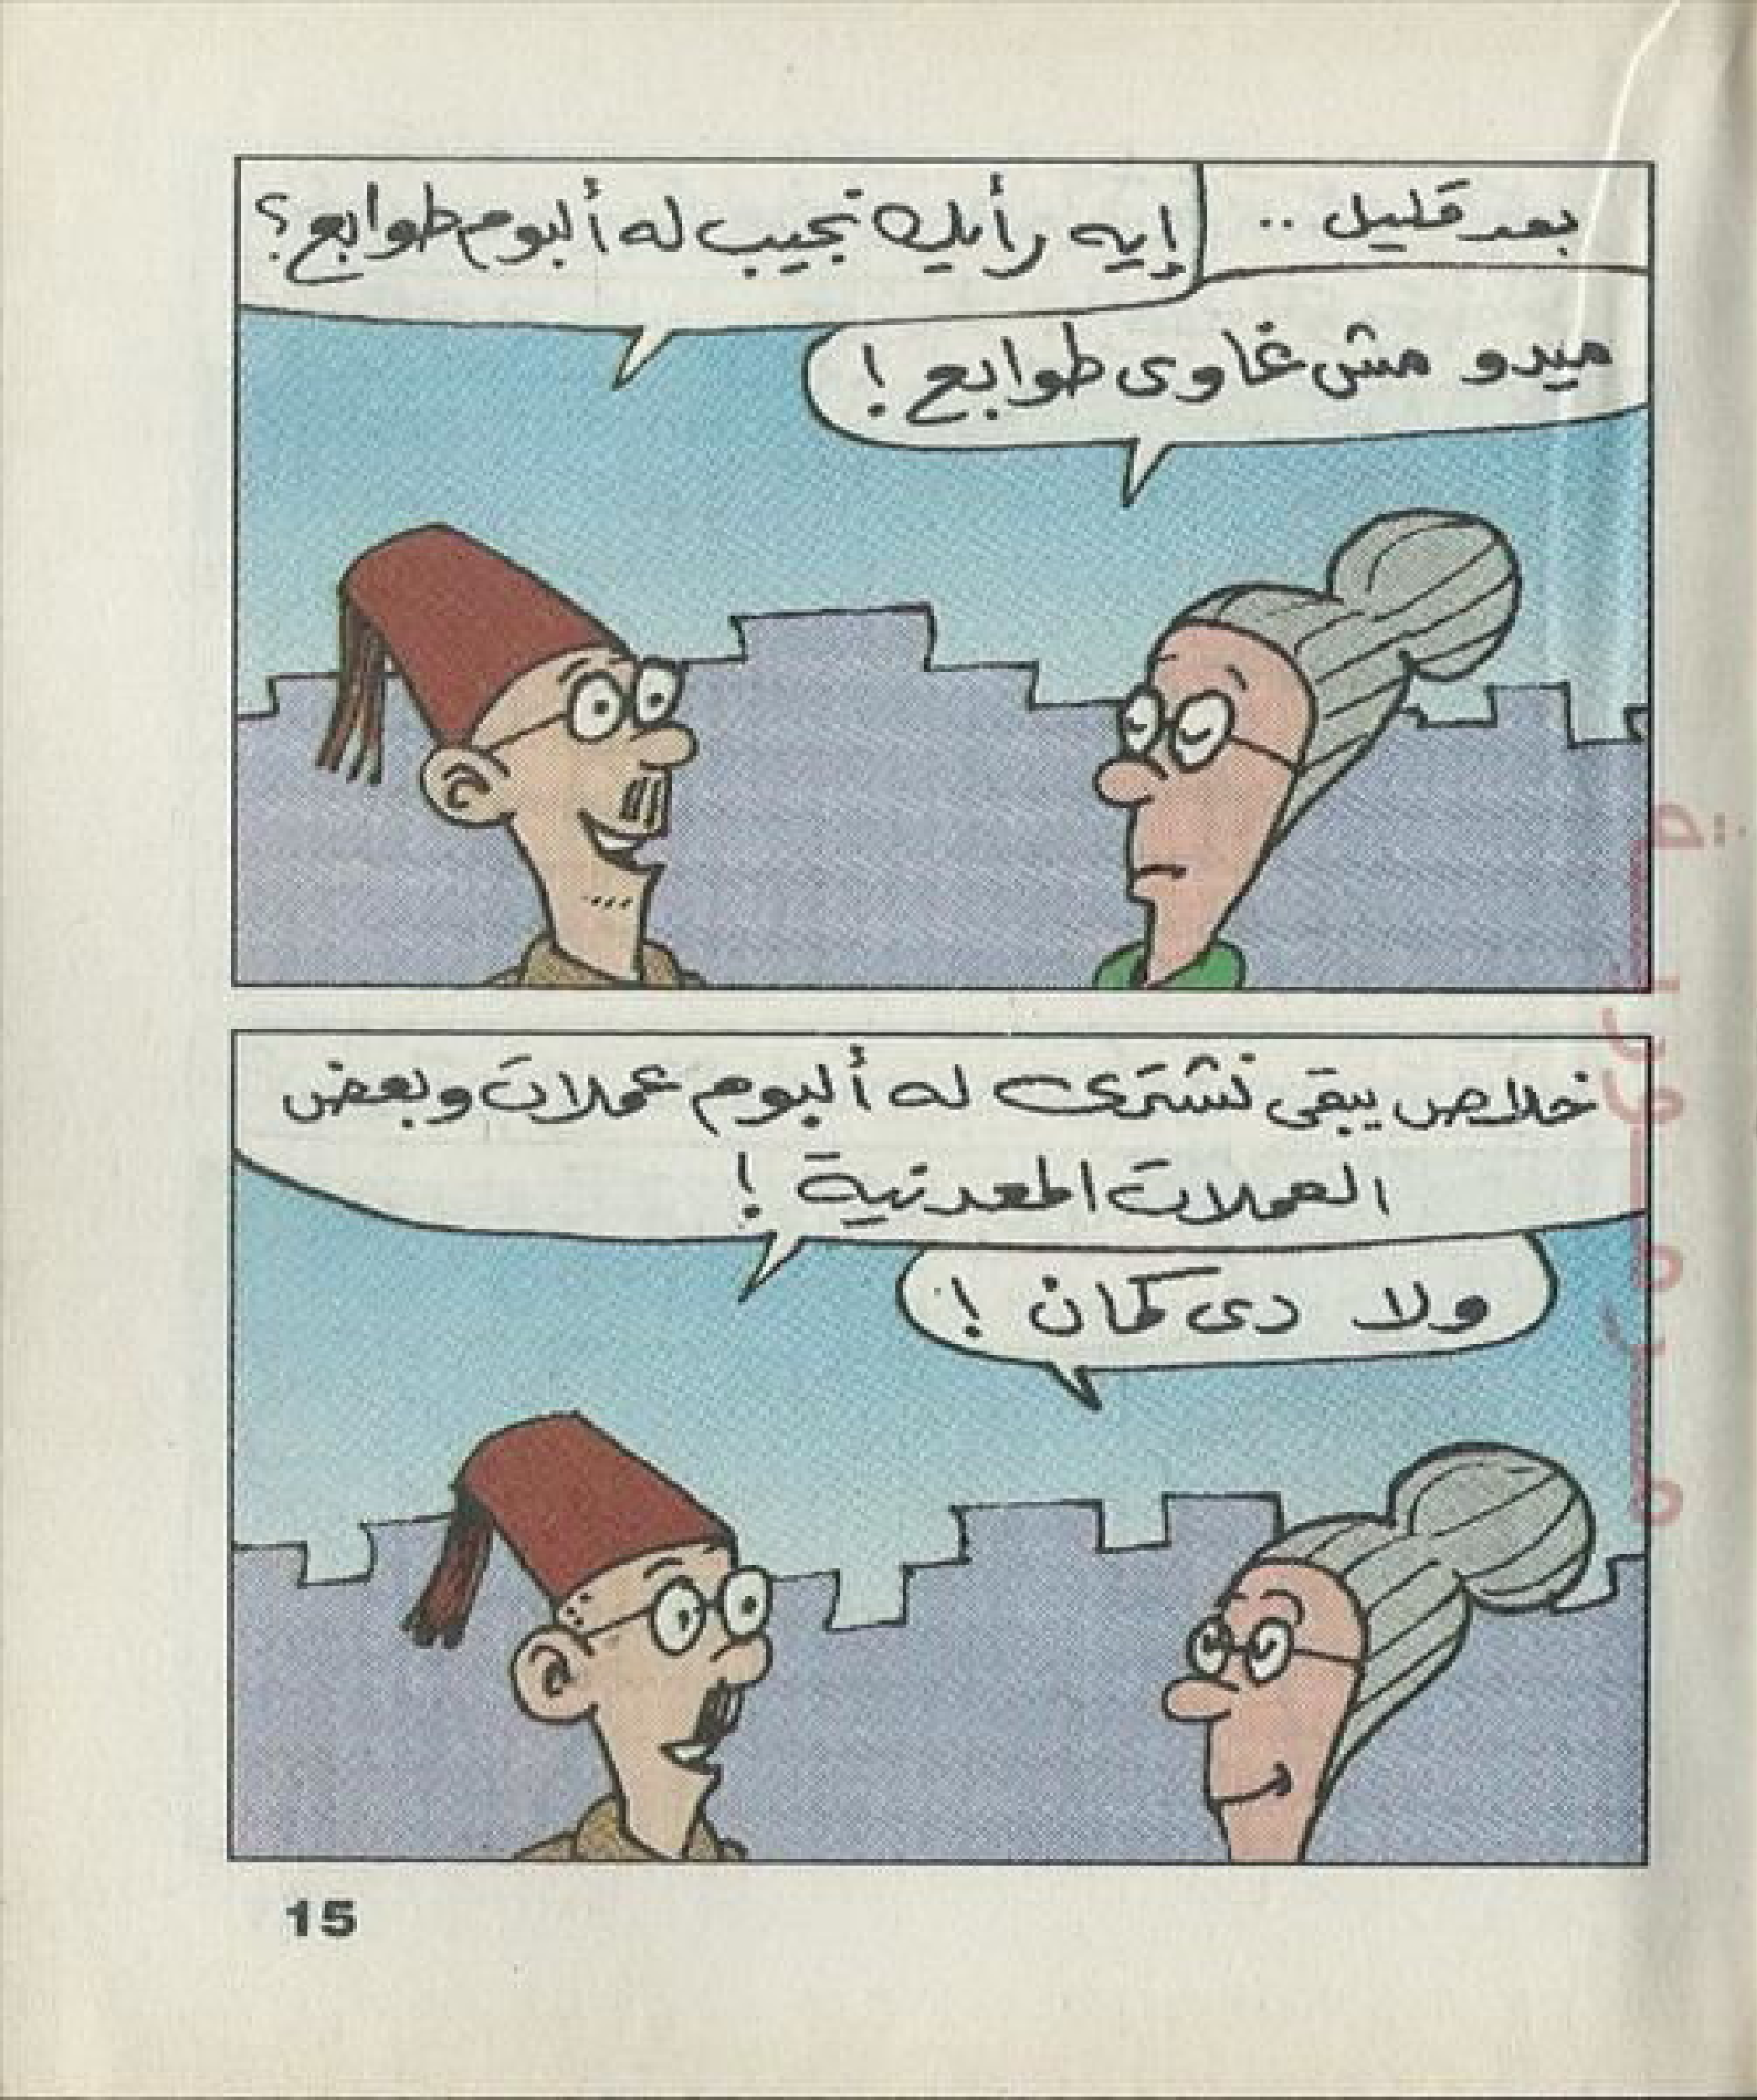 بعد قليل ..
إيه رأيك نجيب له ألبوم طوابع؟
ميدو مش غاوى طوابع!
خلاص يبقى نشترى له ألبوم عملات وبعض
العملات المعدنية!
ولا دى كمان!
15